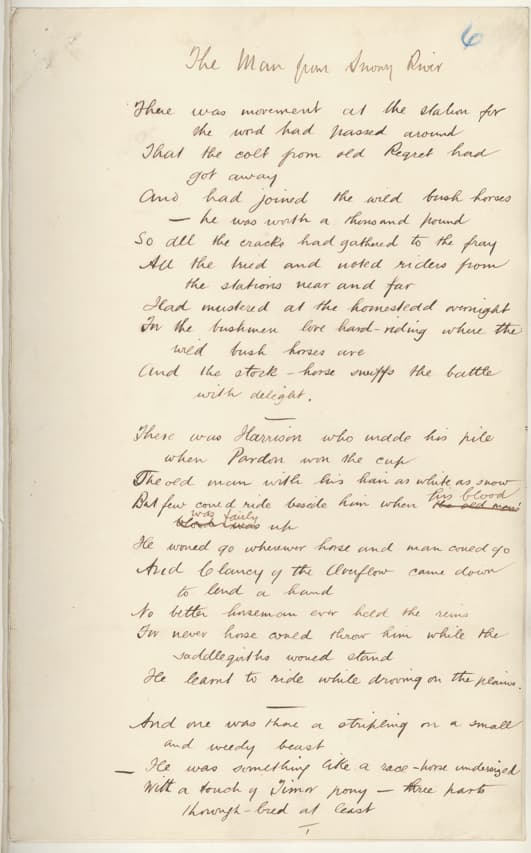 6
The Man from Snowy River
There was movement at the station for
the word had passed around
That the colt from old Regret had
got away
And had joined the wild bush horses
— he was worth a thousand pound
So all the cracks had gathered to the fray
All the tried and noted riders from
the stations near and far
Had mustered at the homestead overnight
For the bushmen love hard-riding where the
wild bush horses are
And the stock-horse snuffs the battle
with delight.
There was Harrison who made his pile
when Pardon won the cup
The old man with his hair as white as snow
his blood
But few could ride beside him when the old man's
was fairly
blood was up
He would go wherever horse and man could go
And Clancy of the Overflow came down
to lend a hand
No better horseman ever held the reins
For never horse could throw him while the
saddlegirths would stand
He learnt to ride while droving on the plains.
And one was there a stripling on a small
and weedy beast
— He was something like a race-horse undersized
With a touch of Timor pony — three parts
thorough-bred at least